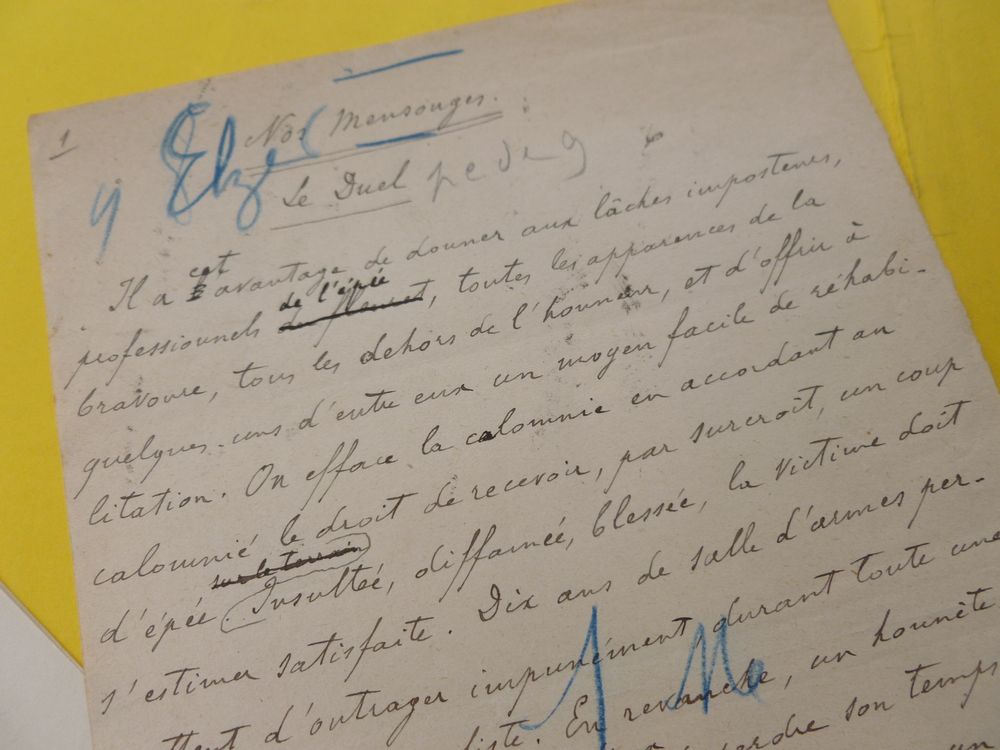 1
Nos Mensonges.
Le Duel
Il a cet avantage de donner aux lâches imposteurs,
professionnels de l'épée du fleuret, toutes les apparences de la
bravoure, tous les dehors de l'honneur, et d'offrir à
quelques-uns d'entre eux un moyen facile de réhabi-
litation. On efface la calomnie en accordant au
calomnié le droit de recevoir, par surcroît, un coup
d'épée sur le terrain. Insultée, diffamée, blessée, la victime doit
s'estimer satisfaite. Dix ans de salle d'armes per-
d'outrager impunément durant toute une
En revanche, un honnête
son temps
un